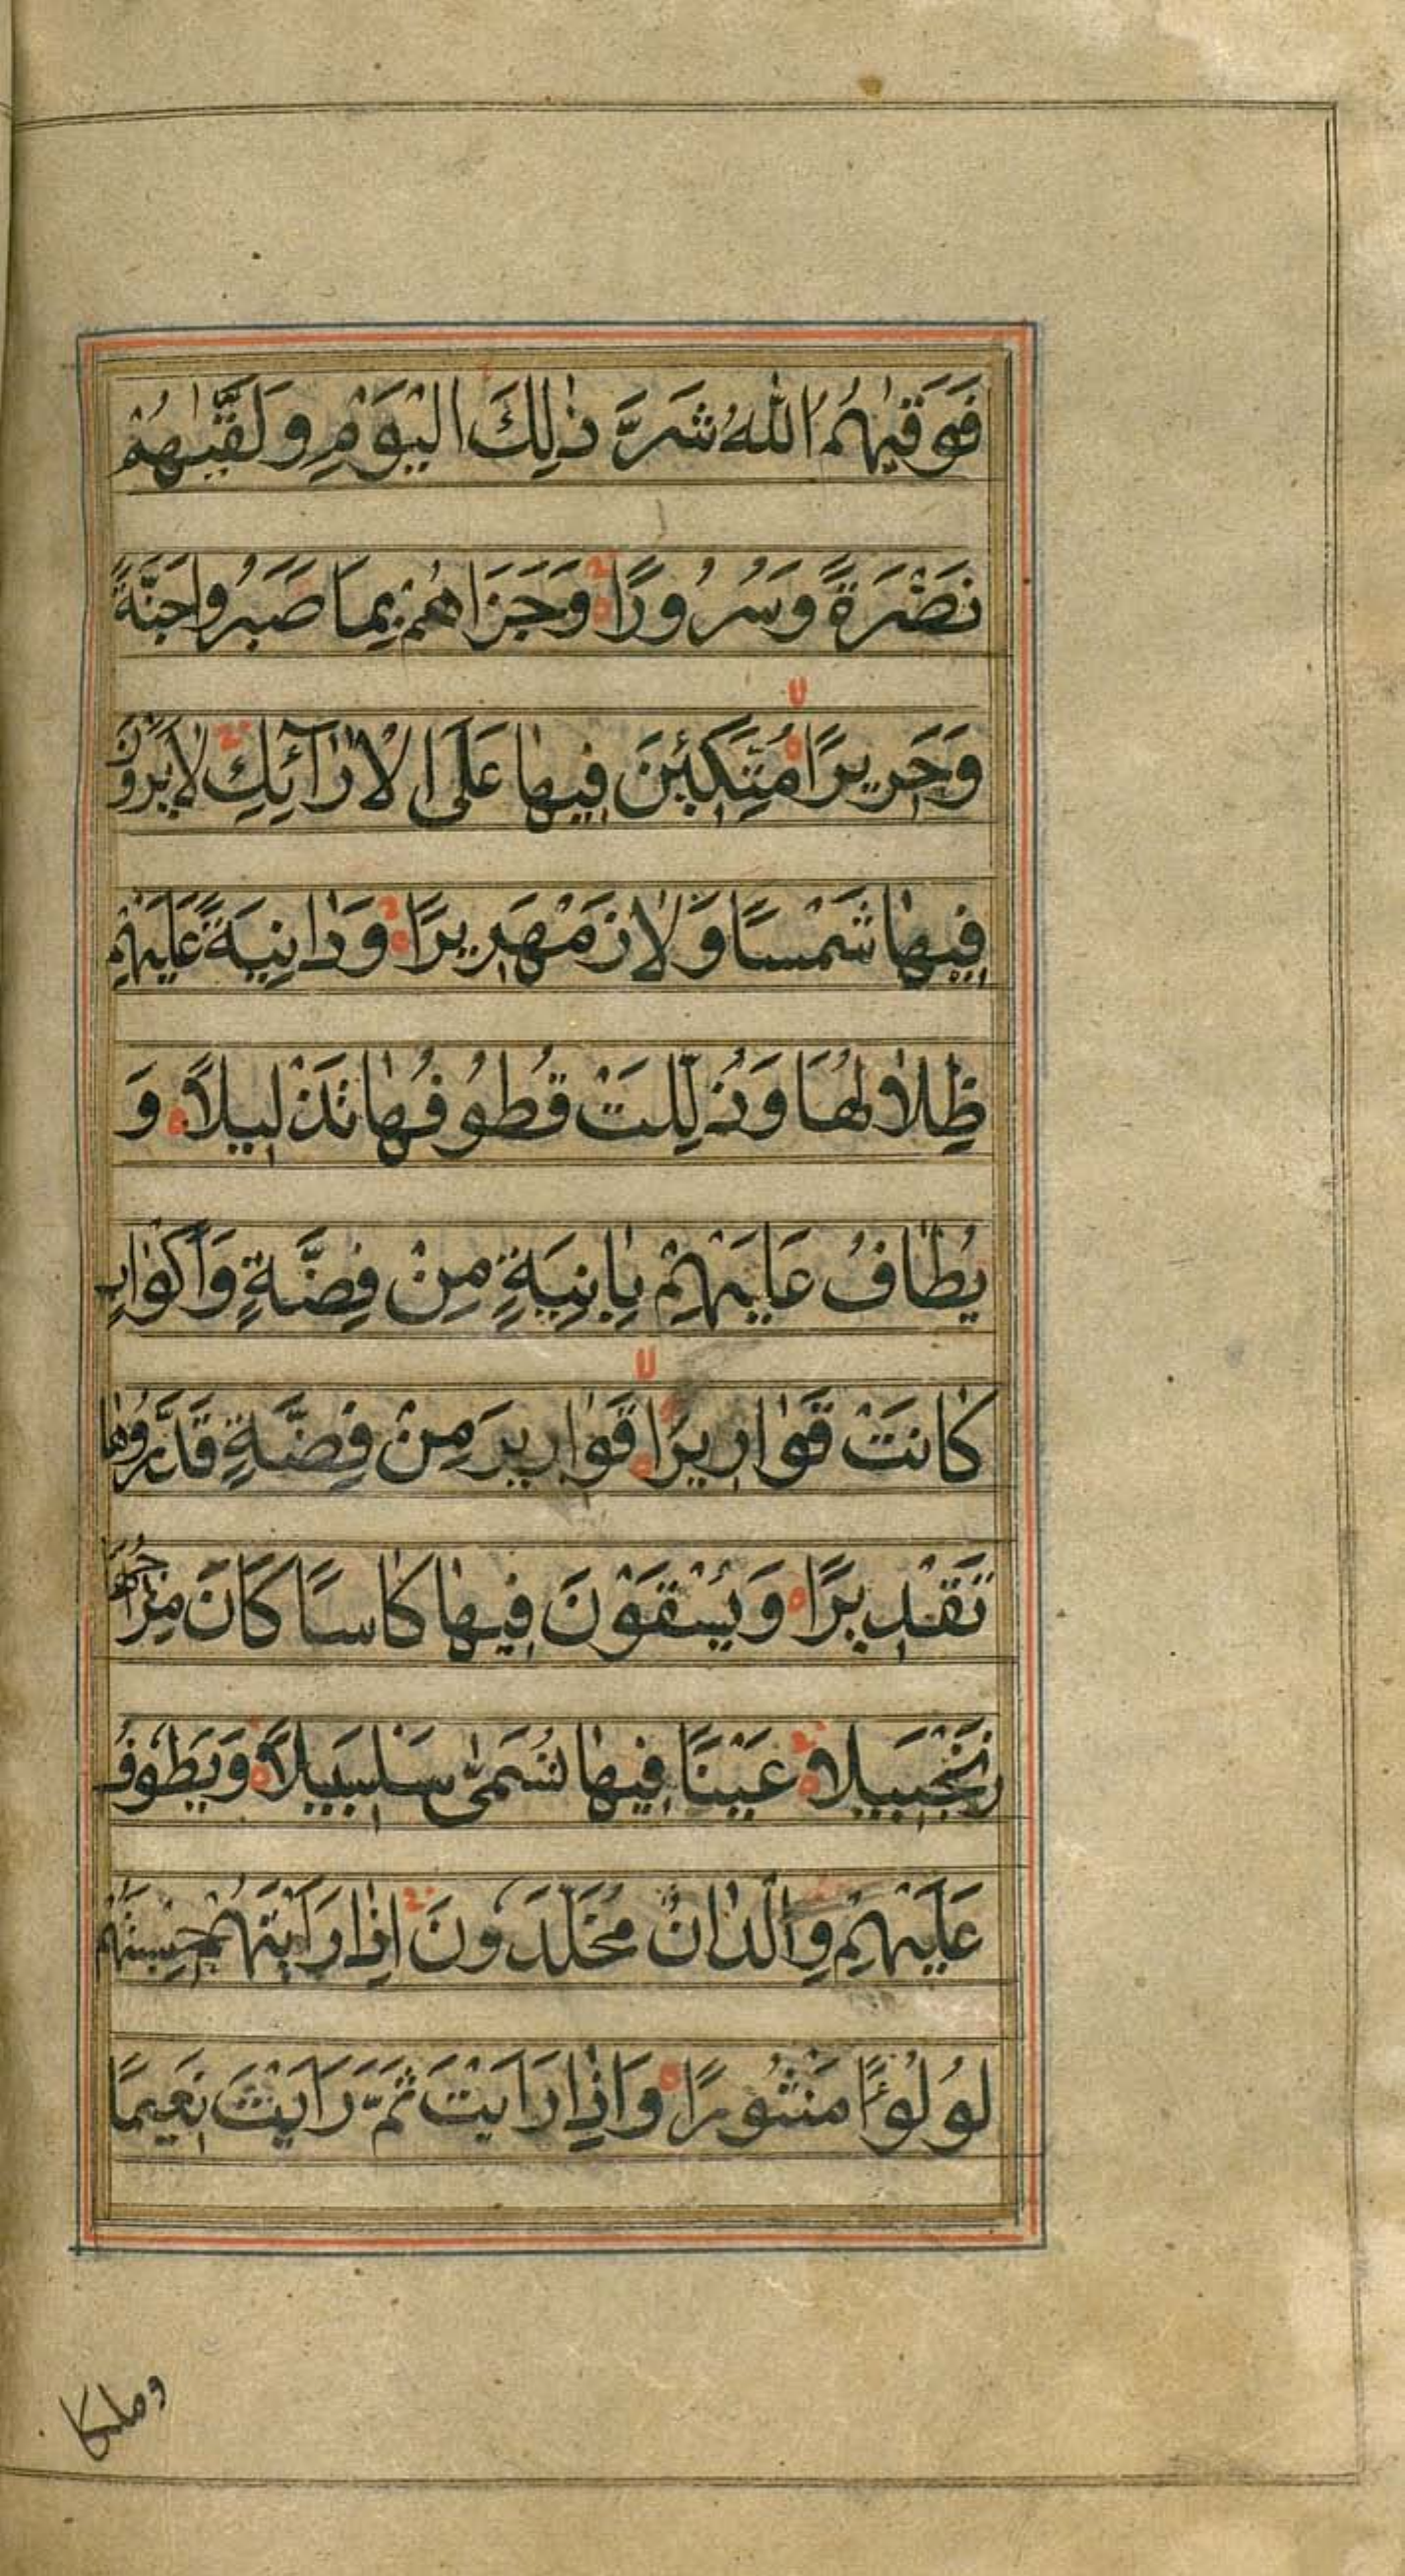 فَوَقٰیهُمُ اللّٰهُ شَرَّ ذٰلِكَ الْیَوْمِ وَلَقّٰیهُمْ
نَضْرَةً وَسُرُورًا وَجَزَاهُمْ بِمَا صَبَرُوا جَنَّةً
وَحَرِیرًا مُتَّكِئِنَ فِیهٰا عَلَى الْاَرٰآئِكِ لٰا یَرَوْنَ
فِیهٰا شَمْسًا وَّلٰا زَمْهَرِیرًا وَدٰانِیَةً عَلَیْهِمْ
ظِلٰالُهَا وَذُلِّلَتْ قُطُوفُهٰا تَذْلِیلًا وَ
یُطٰافُ عَلَیْهِمْ بِاٰنِیَةٍ مِنْ فِضَّةٍ وَاَكْوٰابٍ
كٰانَتْ قَوٰارِیرَا قَوٰارِیرَ مِنْ فِضَّةٍ قَدَّرُوهٰا
تَقْدِیرًا وَیُسْقَوْنَ فِیهٰا كٰاسًا كَانَ مِزٰاجُهَا
زَنْجَبِیلًا عَیْنًا فِیهٰا تُسَمّٰى سَلْسَبِیلًا وَیَطُوفُ
عَلَیْهِمْ وِالْدٰانٌ مُخَلَّدَونَ اِذٰا رَاَیْتَهُمْ حَسِبْتَهُمْ
لُولُؤًا مَنْثُورًا وَاِذٰا رَاَیْتَ ثَمَّ رَاَیْتَ نَعِیمًا
وملكا